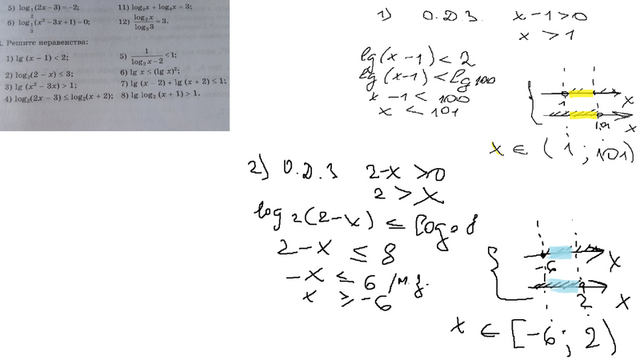 5) log₂(2x − 3) = −2;
11) log₉x + log₃x = 3;
12) log₂x / log₂3 = 3.
Решите неравенства:
1) lg (x − 1) < 2;
5) 1 / log₃x − 2 < 1;
2) log₂(2 − x) ≤ 3;
6) lg x ≤ (lg x)²;
3) lg (x² − 3x) > 1;
7) lg (x − 2) + lg (x + 2) ≤ 1;
4) log₂(2x − 3) ≤ log₂(x + 2);
8) lg log₂ (x + 1) > 1.
1) О.Д.З x − 1 > 0
x > 1
lg (x − 1) < 2
lg (x − 1) < lg 100
x − 1 < 100
x < 101
1 101 x
x
x ∈ (1 ; 101)
2) О.Д.З 2 − x > 0
2 > x
log₂(2 − x) ≤ log₂ 8
2 − x ≤ 8
−x ≤ 6
x ≥ −6
−6 x
2 x
x ∈ [−6 ; 2)